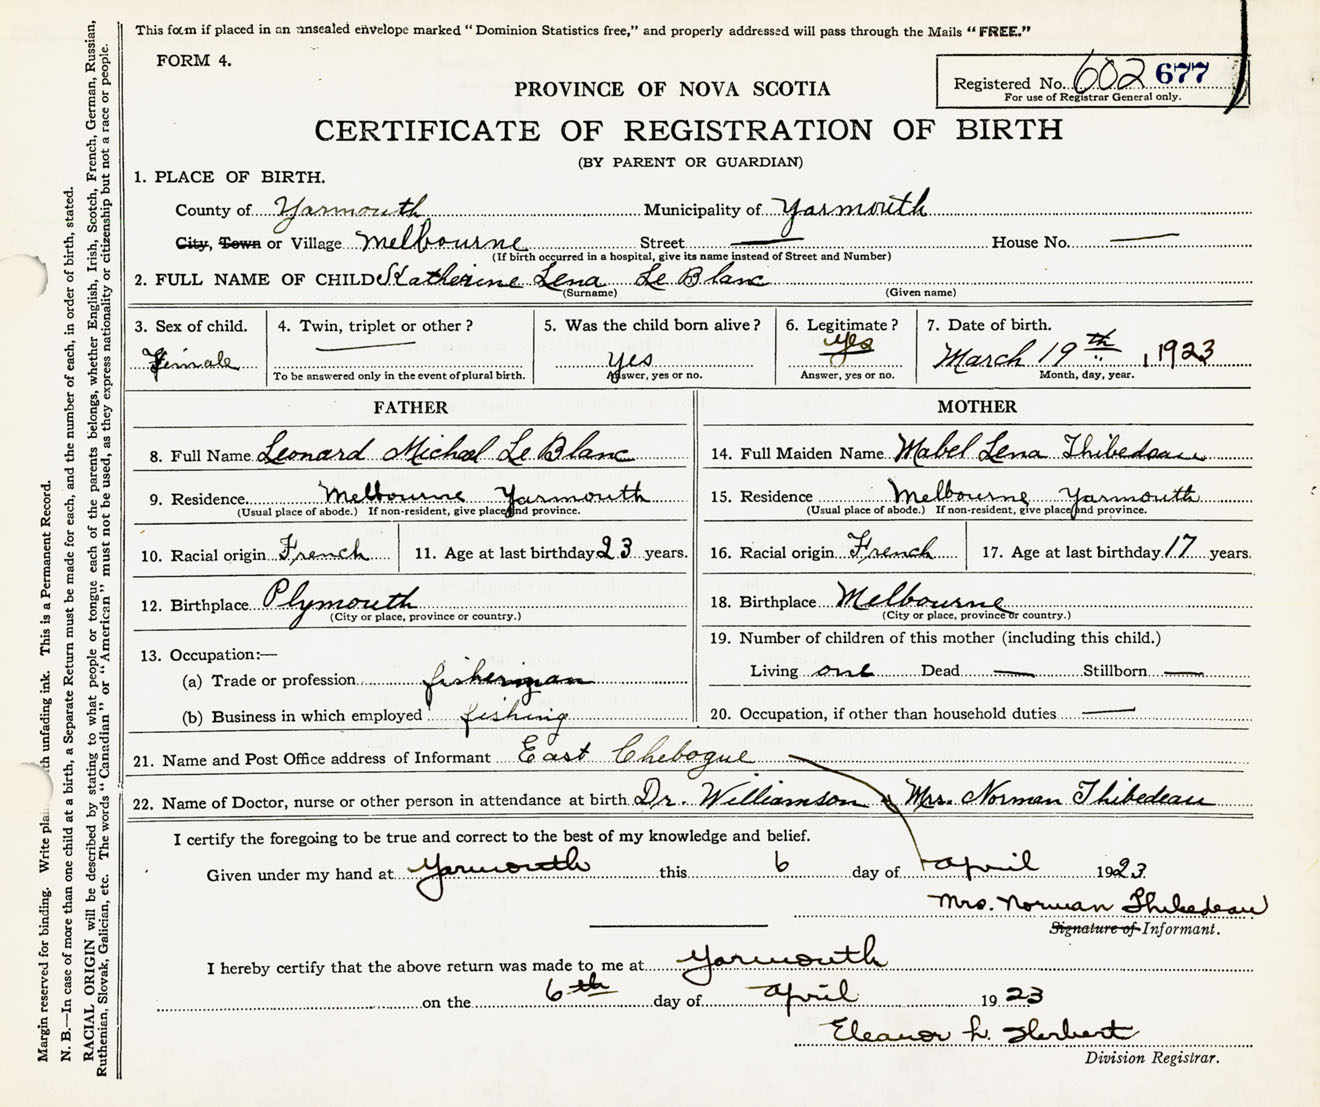 This form if placed in an unsealed envelope marked "Dominion Statistics free," and properly addressed will pass through the Mails "FREE."
FORM 4.
Registered No. 602 677
For use of Registrar General only.
PROVINCE OF NOVA SCOTIA
CERTIFICATE OF REGISTRATION OF BIRTH
(BY PARENT OR GUARDIAN)
1. PLACE OF BIRTH.
County of Yarmouth Municipality of Yarmouth
City, Town or Village Melbourne Street — House No. —
(If birth occurred in a hospital, give its name instead of Street and Number)
2. FULL NAME OF CHILD Katherine Lena Le Blanc
(Surname) (Given name)
3. Sex of child. 4. Twin, triplet or other? 5. Was the child born alive? 6. Legitimate? 7. Date of birth.
Female — yes yes March 19th, 1923
To be answered only in the event of plural birth. Answer, yes or no. Answer, yes or no. Month, day, year.
FATHER MOTHER
8. Full Name Leonard Michael Le Blanc 14. Full Maiden Name Mabel Lena Thibedeau
9. Residence Melbourne Yarmouth 15. Residence Melbourne Yarmouth
(Usual place of abode.) If non-resident, give place and province. (Usual place of abode.) If non-resident, give place and province.
10. Racial origin French 11. Age at last birthday 23 years. 16. Racial origin French 17. Age at last birthday 17 years.
12. Birthplace Plymouth 18. Birthplace Melbourne
(City or place, province or country.) (City or place, province or country.)
13. Occupation:— 19. Number of children of this mother (including this child.)
(a) Trade or profession fisherman Living one Dead — Stillborn —
(b) Business in which employed fishing 20. Occupation, if other than household duties —
21. Name and Post Office address of Informant East Chebogue
22. Name of Doctor, nurse or other person in attendance at birth Dr. Williamson & Mrs. Norman Thibedeau
I certify the foregoing to be true and correct to the best of my knowledge and belief.
Given under my hand at Yarmouth this 6 day of April 1923
Mrs. Norman Thibedeau
Signature of Informant.
I hereby certify that the above return was made to me at Yarmouth
on the 6th day of April 1923
Eleanor L. Herbert
Division Registrar.
Margin reserved for binding. Write pla th unfading ink. This is a Permanent Record.
N. B.—In case of more than one child at a birth, a Separate Return must be made for each, and the number of each, in order of birth, stated.
RACIAL ORIGIN will be described by stating to what people or tongue each of the parents belongs, whether English, Irish, Scotch, French, German, Russian,
Ruthenian, Slovak, Galician, etc. The words "Canadian" or "American" must not be used, as they express nationality or citizenship but not a race or people.